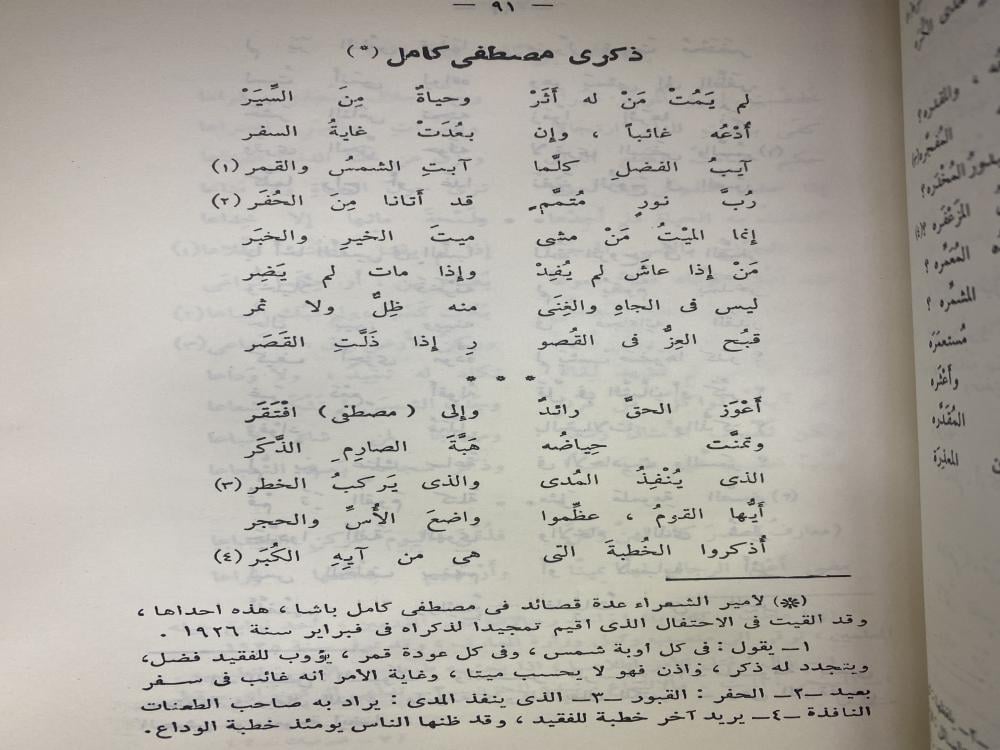 — ٩١ —
ذكرى مصطفى كامل (*)
لم يَمُتْ مَنْ له أَثَرْ وحياةٌ مِنَ السِّيَرْ
أُدْعُه غائباً ، وإن بعُدَتْ غايةُ السفر
آيبُ الفضلِ كلّما آبتِ الشمسُ والقمر (١)
رُبَّ نورٍ مُتمَّمٍ قد أتانا مِنَ الحُفَر (٢)
إنما الميْتُ مَنْ مشى ميتَ الخيرِ والخبَر
مَنْ إذا عاشَ لم يُفِدْ وإذا مات لم يَضِر
ليس فى الجاهِ والغِنَى منه ظِلٌّ ولا ثمر
قبُح العِزُّ فى القُصو رِ إذا ذَلَّتِ القَصَر
* * *
أَعْوَز الحقَّ رائدٌ وإلى ( مصطفى ) افْتَقَر
وتمنَّت حِياضُه هَبَّةَ الصارِمِ الذَّكَر
الذى يُنْفِذُ المُدى والذى يَركبُ الخطر (٣)
أَيُّها القومُ ، عظِّموا واضعَ الأُسِّ والحجر
أُذكروا الخُطبةَ التى هى من آيِهِ الكُبَر (٤)
(*) لأمير الشعراء عدة قصائد فى مصطفى كامل باشا ، هذه احداها ،
وقد القيت فى الاحتفال الذى اقيم تمجيدا لذكراه فى فبراير سنة ١٩٢٦ .
١ــ يقول : فى كل اوبة شمس ، وفى كل عودة قمر ، يؤوب للفقيد فضل ،
ويتجدد له ذكر ، واذن فهو لا يحسب ميتا ، وغاية الأمر انه غائب فى سفر
بعيد ــ٢ــ الحفر : القبور ــ٣ــ الذى ينفذ المدى : يراد به صاحب الطعنات
النافذة ــ٤ــ يريد آخر خطبة للفقيد ، وقد ظنها الناس يومئذ خطبة الوداع .
والقدره ؟
المُفجَّره (٢)
المُخْدَره ؟
المُعَمَّره ؟
المشمَّره ؟
مُستعمَرَه
وأَعْثَره
المُقَدَّره
المعذِرَة